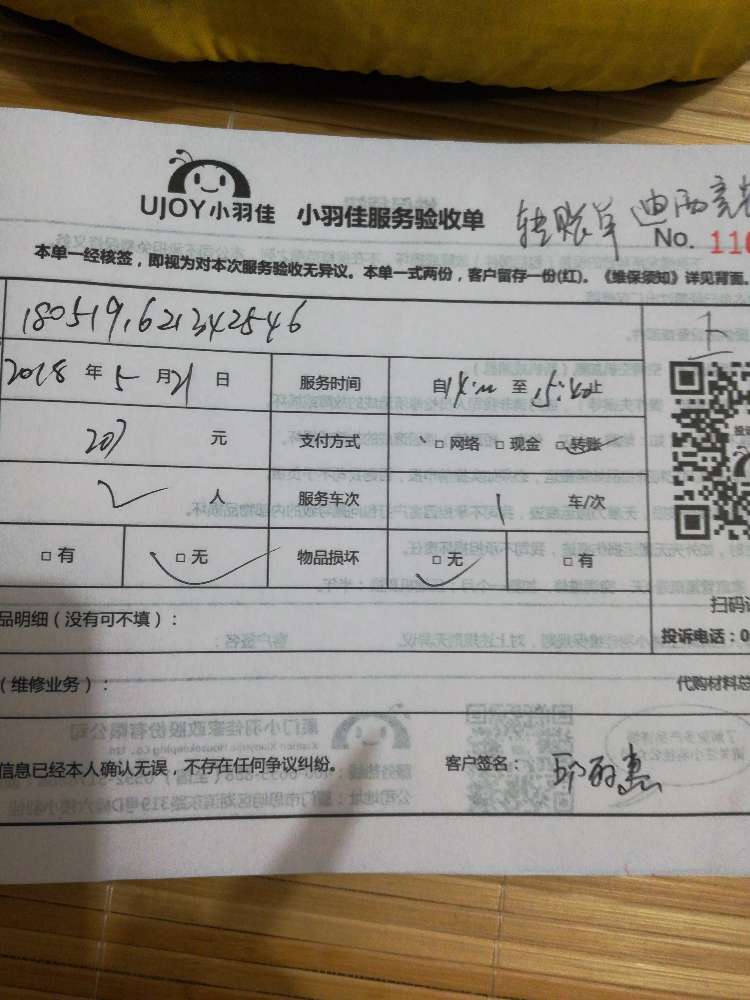 UJOY小羽佳 小羽佳服务验收单 转账单
No. 110
本单一经核签，即视为对本次服务验收无异议。本单一式两份，客户留存一份(红)。《维保须知》详见背面。
180519162134254 6
2018 年 5 月 21 日 服务时间 自14:00 至 15:40止
207 元 支付方式 □ 网络 □ 现金 □ 转账
2 人 服务车次 1 车/次
□ 有 □ 无 物品损坏 □ 无 □ 有
扫码
品明细（没有可不填）：
投诉电话：0
（维修业务）： 代购材料总
信息已经本人确认无误，不存在任何争议纠纷。 客户签名：